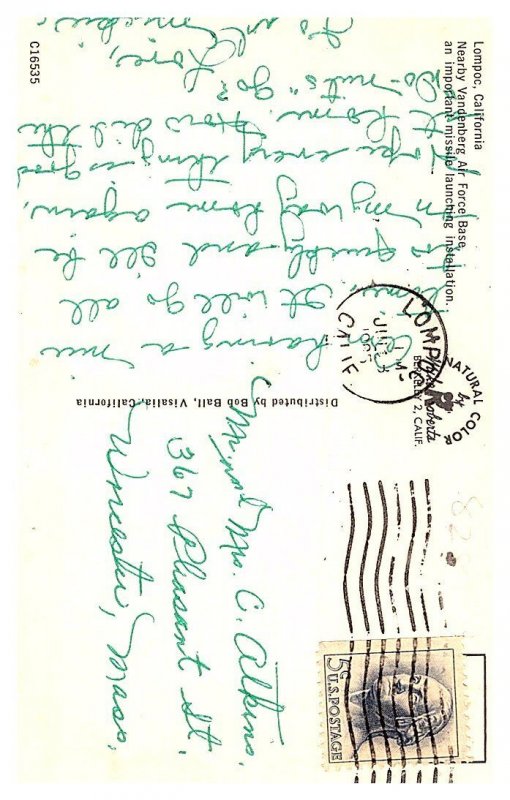 Lompoc, California
Nearby Vandenberg Air Force Base,
an important missile launching installation.
having a nice
time. It will go all
too quickly and I'll be
on my way home again.
Hope everything is good
at home. How did the
"Do-nuts" go?
Love,
To all
C16535
Distributed by Bob Ball, Visalia, California
NATURAL COLOR
by
Mike Roberts
BERKELEY 2, CALIF.
LOMPOC
CALIF.
5¢ U.S. POSTAGE
Mr. and Mrs. C. Atkins.
367 Pleasant St.
Worcester, Mass.